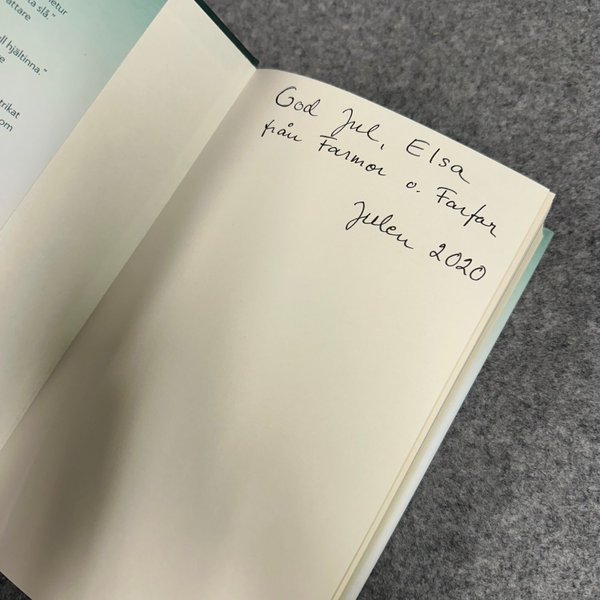 etur
ta slå."
attare
ll hjältinna."
e
trikat
om
God Jul, Elsa
från Farmor o. Farfar
Julen 2020